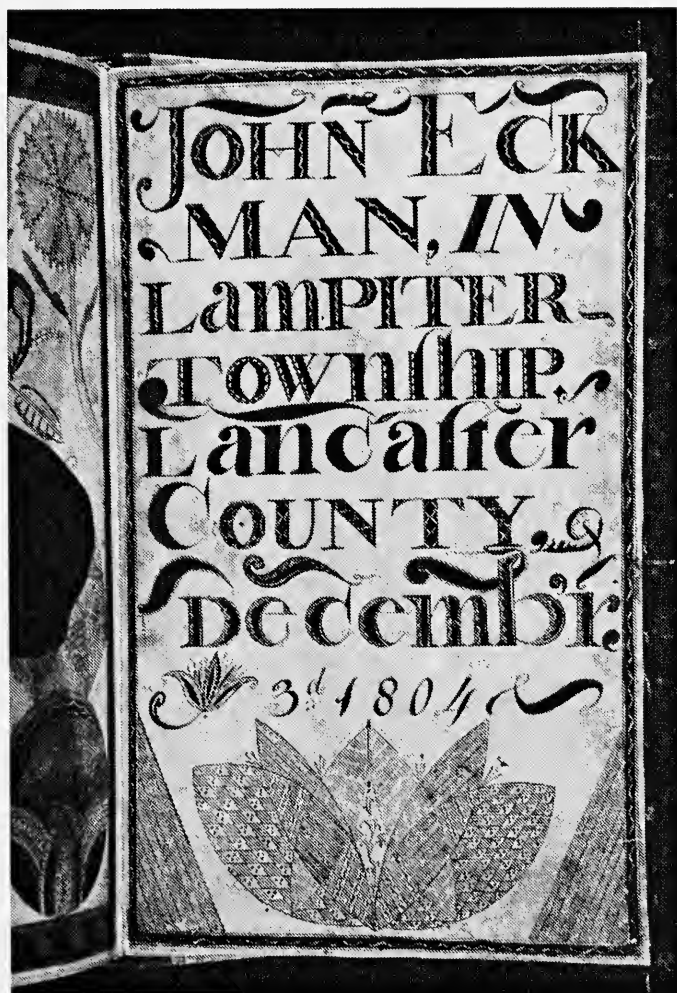 JOHN ECK
MAN, IN
LamPITER-
TOWNſhIP.
Lancaſter
COUNTY.
Decemb'r.
3d 1804